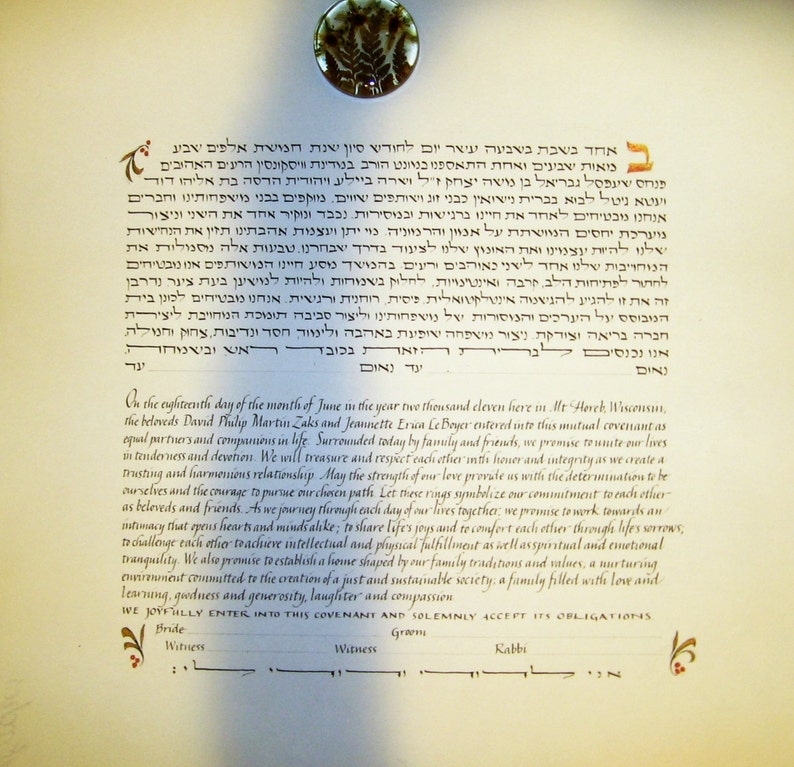 באחד בשבת בשבעה עשר יום לחודש סיון שנת חמשת אלפים שבע
מאות שבעים ואחת התאספנו במונט הורב במדינת וויסקונסין הרעים האהובים
פנחס שיעפסל גבריאל בן משה יצחק ז"ל ושרה ביילע ויהודית הדסה בת אליהו דוד
ויעטא גיטל לבוא בברית נישואין כבני זוג ושותפים שווים. מוקפים בבני משפחותינו וחברים
אנחנו מבטיחים לאחד את חיינו ברגישות ובמסירות. נכבד ונוקיר אחד את השני וניצור
מערכת יחסים המושתת על אמון והרמוניה. מי יתן ועצמת אהבתינו תזין את הנחישות
שלנו להיות עצמינו ואת האומץ שלנו לצעוד בדרך שבחרנו. טבעות אלה מסמלות את
המחוייבות שלנו אחד לשני כאוהבים ורעים. בהמשך מסע חיינו המשותפים אנו מבטיחים
לחתור לפתיחות הלב, קרבה ואינטימיות, לחלוק בשמחות ולהיות למשיען בעת צער נדרבן
זה את זו להגיע להגשמה אינטלקטואלית, פיסית, רוחנית ורגשית. אנחנו מבטיחים לכונן בית
המבוסס על הערכים והמסורות של משפחותינו וליצור סביבה תומכת המחוייבת ליצירת
חברה בריאה וצודקת. ניצור משפחה שופעת באהבה ולימוד, חסד ונדיבות, צחוק וחמלה.
אנו נכנסים לברית הזאת בכובד ראש ובשמחה.
נאום עד נאום עד
On the eighteenth day of the month of June in the year two thousand eleven here in Mt Horeb, Wisconsin,
the beloveds David Philip Martin Zaks and Jeannette Erica LeBoyer entered into this mutual covenant as
equal partners and companions in life. Surrounded today by family and friends, we promise to unite our lives
in tenderness and devotion. We will treasure and respect each other with honor and integrity as we create a
trusting and harmonious relationship. May the strength of our love provide us with the determination to be
ourselves and the courage to pursue our chosen path. Let these rings symbolize our commitment to each other
as beloveds and friends. As we journey through each day of our lives together, we promise to work towards an
intimacy that opens hearts and minds alike; to share life's joys and to comfort each other through life's sorrows;
to challenge each other to achieve intellectual and physical fulfillment as well as spiritual and emotional
tranquility. We also promise to establish a home shaped by our family traditions and values, a nurturing
environment committed to the creation of a just and sustainable society: a family filled with love and
learning, goodness and generosity, laughter and compassion
WE JOYFULLY ENTER INTO THIS COVENANT AND SOLEMNLY ACCEPT ITS OBLIGATIONS
Bride Groom
Witness Witness Rabbi
אני לדודי ודודי לי: